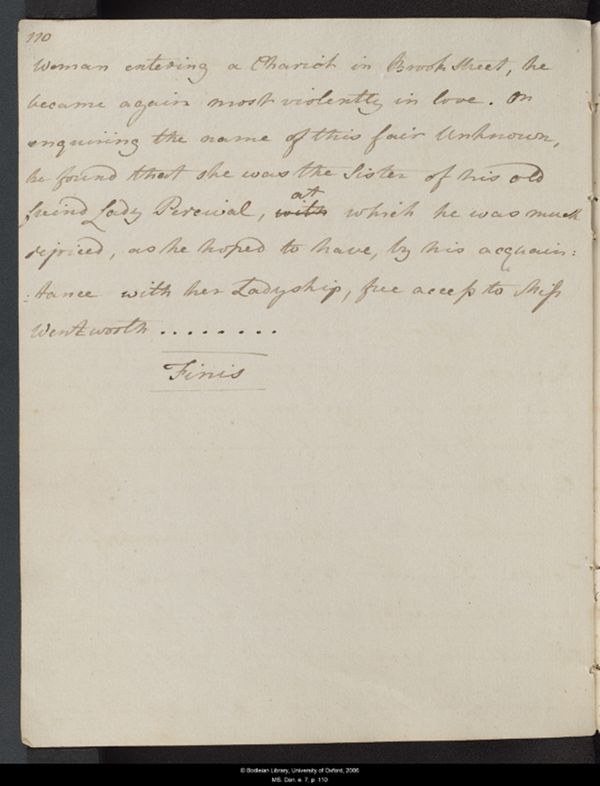 110
Woman entering a Chariot in Brook Street, he
became again most violently in love. On
enquiring the name of this fair Unknown,
he found that she was the Sister of his old
freind Lady Percival, with at which he was much
rejoiced, as he hoped to have, by his acquain:
:tance with her Ladyship, free access to Miss
Wentworth .........
Finis
© Bodleian Library, University of Oxford, 2006
MS. Don. e. 7, p. 110